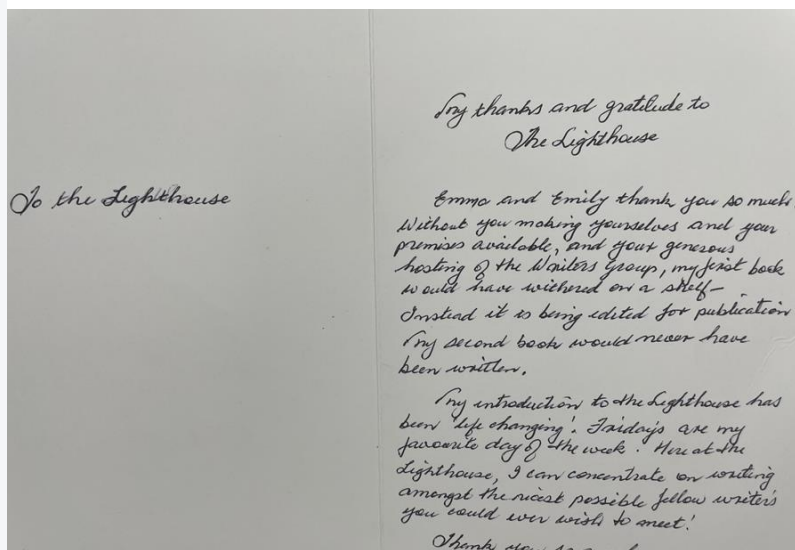 To the Lighthouse
My thanks and gratitude to
The Lighthouse
Emma and Emily thank you so much
Without you making yourselves and your
premises available, and your generous
hosting of the Writers Group, my first book
would have withered on a shelf—
Instead it is being edited for publication
My second book would never have
been written.
My introduction to the Lighthouse has
been 'life changing'. Fridays are my
favourite day of the week. Here at the
Lighthouse, I can concentrate on writing
amongst the nicest possible fellow writers
you could ever wish to meet!
Thank you so